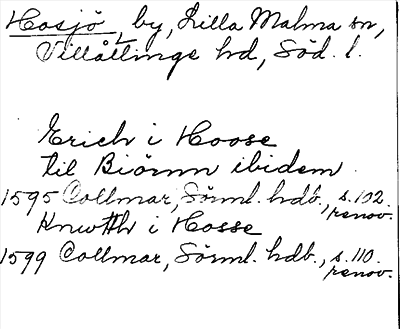 Hosjö, by, Lilla Malma sn,
Villåttinge hd, Söd. l.
Erich i Hoose
til Biörnn ibidem
1595 Collmar, Sörml. hdb., s. 102.
renov.
Knwtth i Hosse
1599 Collmar, Sörml. hdb., s. 110.
renov.